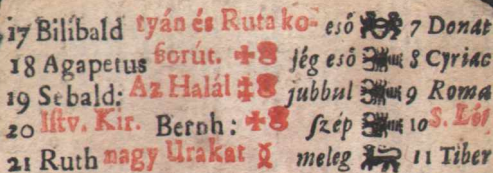 17 Bilibald tyán és Ruta ko- eső 7 Donat
18 Agapetus ſorút. jég eső 8 Cyriac
19 Sebald: Az Halál jubbul 9 Roma
20 Iſtv. Kir. Bernh: ſzép 10 S. Lör
21 Ruth nagy Urakat meleg 11 Tiber